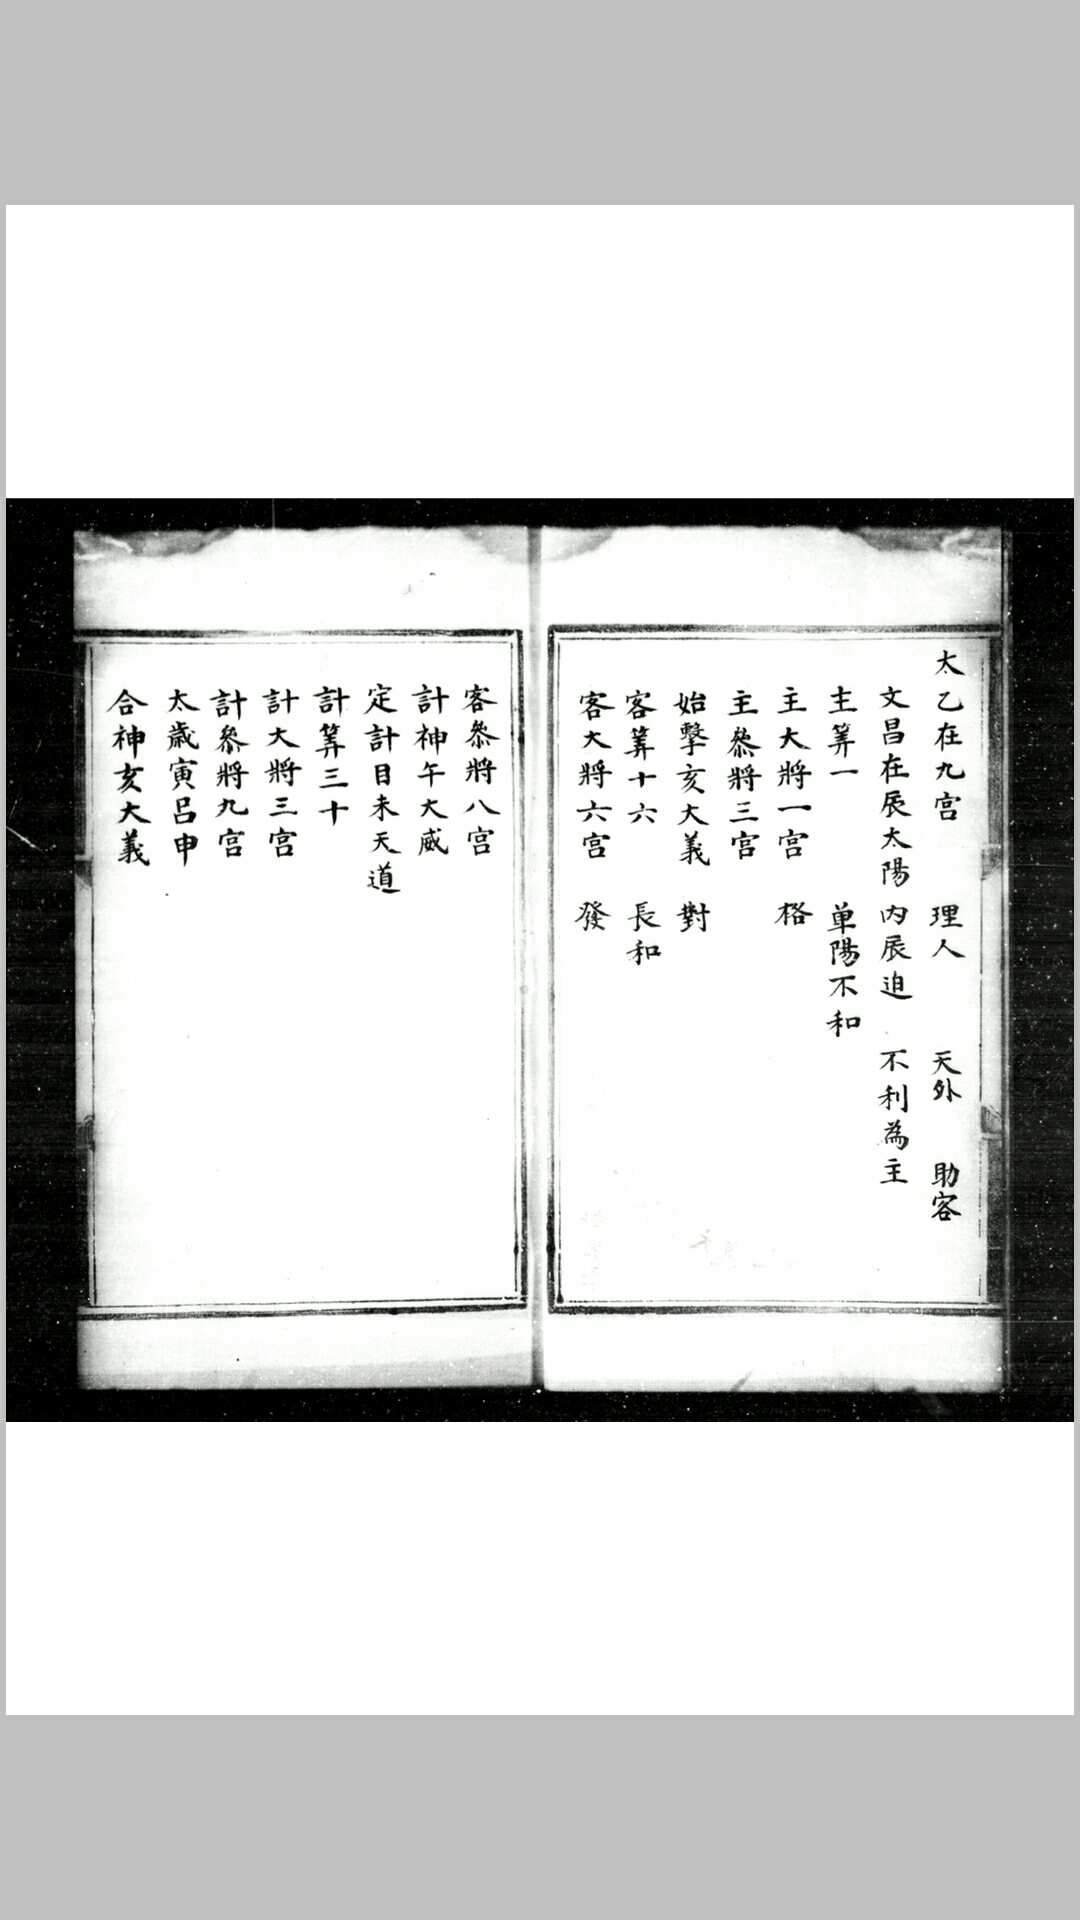 太乙在九宫 理人 天外 助客
文昌在辰太陽 内辰迫 不利為主
主筭一 单陽不和
主大將一宫 格
主叅將三宫
始擊亥大義 對
客筭十六 長和
客大將六宫 發
客叅將八宫
計神午大威
定計目未天道
計筭三十
計大將三宫
計叅將九宫
太歲寅吕申
合神亥大義